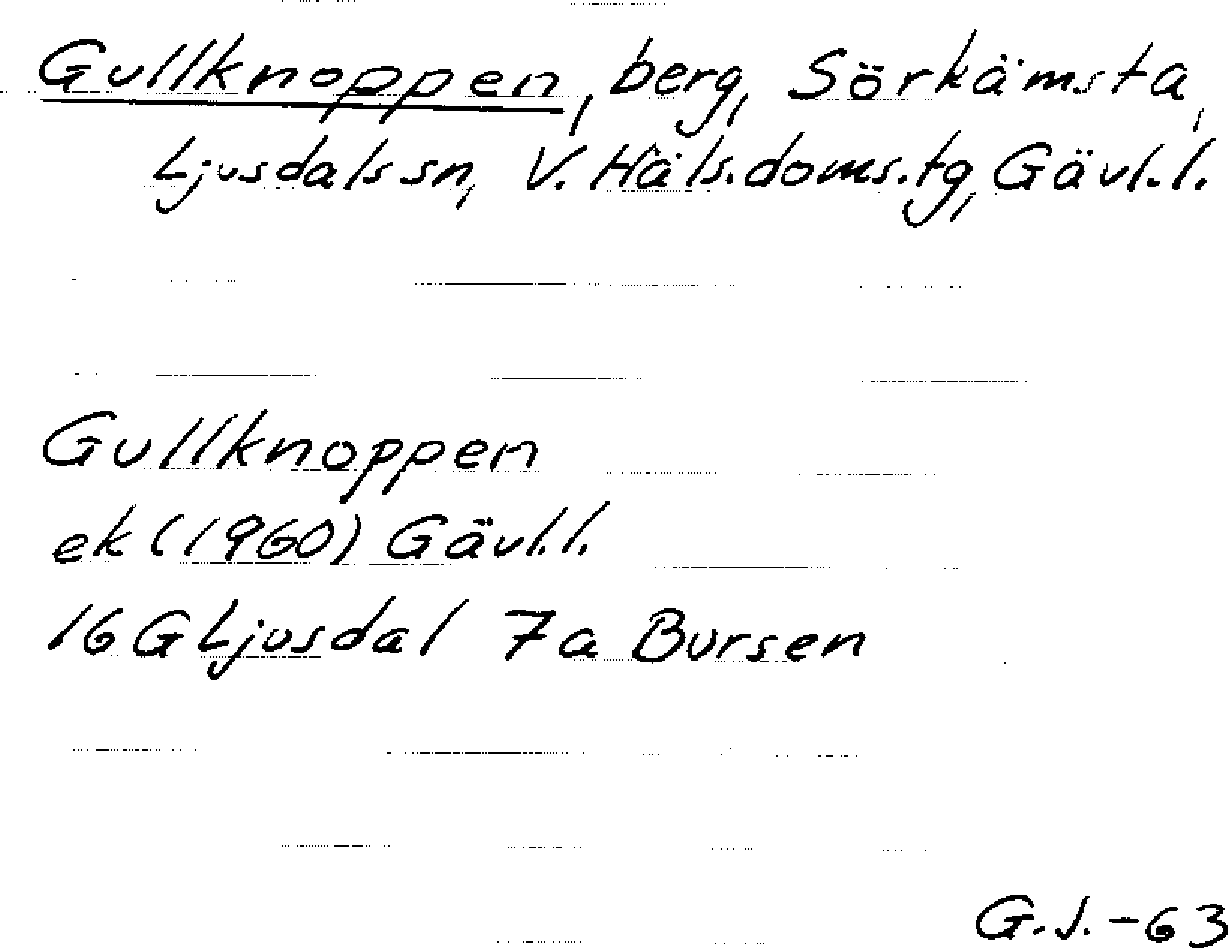 Gullknoppen, berg, Sörkämsta,
Ljusdals sn, V. Häls. doms. tg, Gävl. l.
Gullknoppen
ek (1960) Gävl. l.
16 G Ljusdal 7a Bursen
G. J. -63